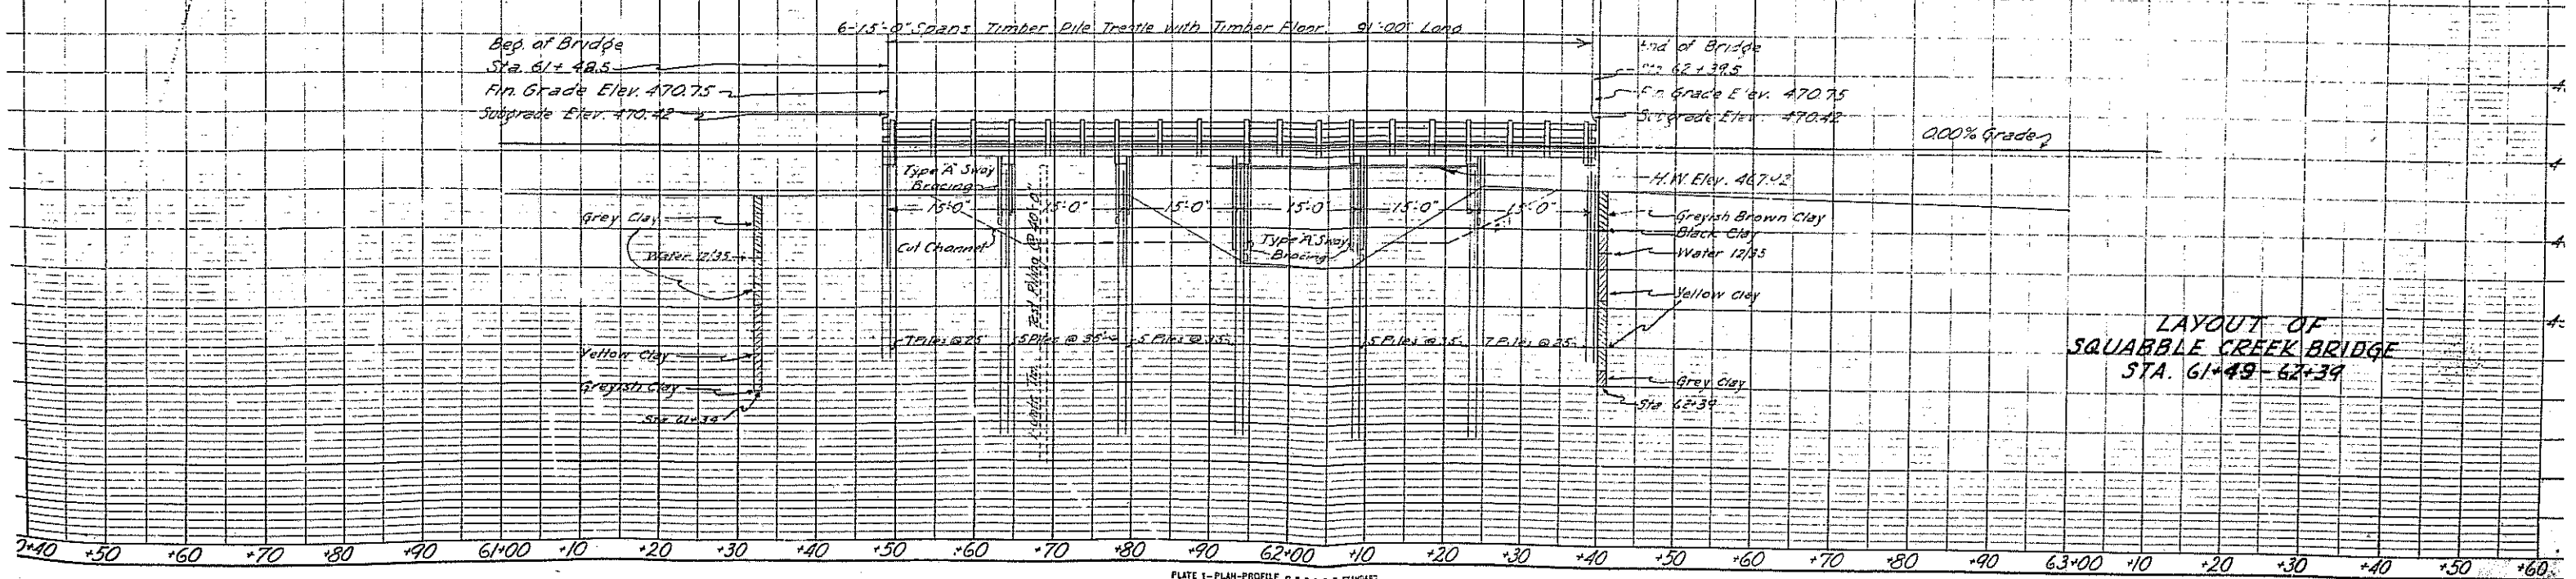 6-15'-0" Spans Timber Pile Trestle with Timber Floor. 91'-00" Long
Beg. of Bridge
Sta. 61+48.5
Fin. Grade Elev. 470.75
Subgrade Elev. 470.42
End of Bridge
62+39.5
Fin. Grade Elev. 470.75
Subgrade Elev. 470.42
0.00% Grade
Type A Sway
Bracing
H.W. Elev. 467.42
15'-0" 15'-0" 15'-0" 15'-0" 15'-0" 15'-0"
Grey Clay
Water 12/35
Cut Channel
Test Piling @ 40'-0"
Type A Sway
Bracing
Greyish Brown Clay
Black Clay
Water 12/35
Yellow Clay
7 Piles @ 25' 5 Piles @ 35' 5 Piles @ 35' 5 Piles @ 35' 7 Piles @ 25'
Yellow Clay
Greyish Clay
Sta. 61+34
Grey Clay
Sta. 62+39
LAYOUT OF
SQUABBLE CREEK BRIDGE
STA. 61+49-62+39
+40 +50 +60 +70 +80 +90 61+00 +10 +20 +30 +40 +50 +60 +70 +80 +90 62+00 +10 +20 +30 +40 +50 +60 +70 +80 +90 63+00 +10 +20 +30 +40 +50 +60
PLATE 1-PLAN-PROFILE